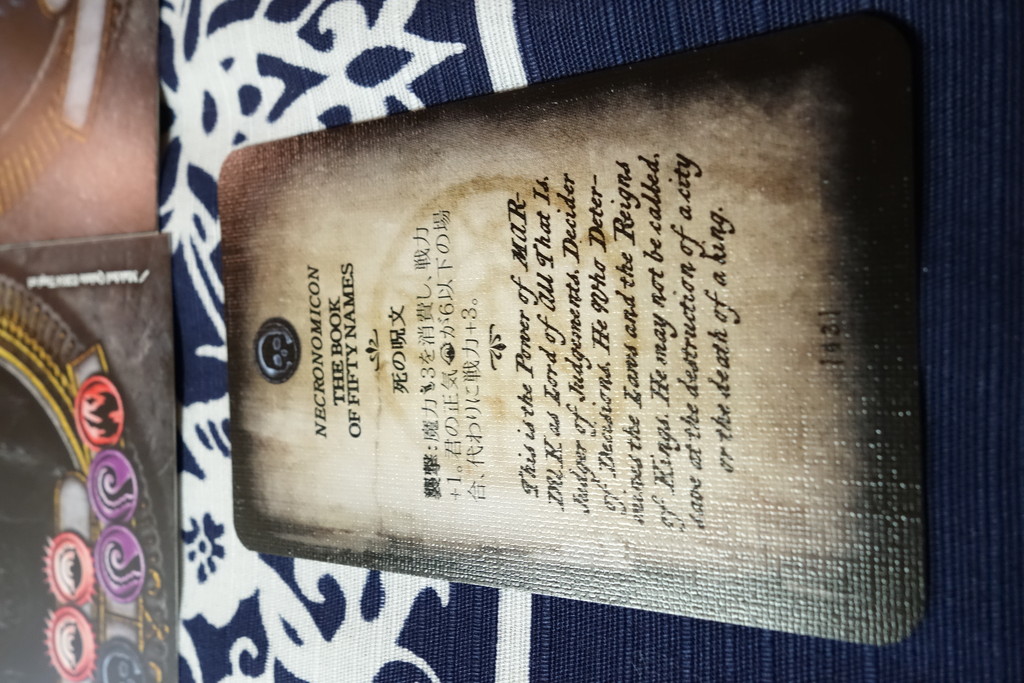 NECRONOMICON
THE BOOK
OF FIFTY NAMES
死の呪文
襲撃:魔力 3を消費し、戦力
+1。君の正気 が6以下の場
合、代わりに戦力+3。
This is the Power of MAR-
DUK as Lord of All That Is,
Judger of Judgements, Decider
of Decisions, He Who Deter-
mines the Laws and the Reigns
of Kings. He may not be called,
save at the destruction of a city
or the death of a king.